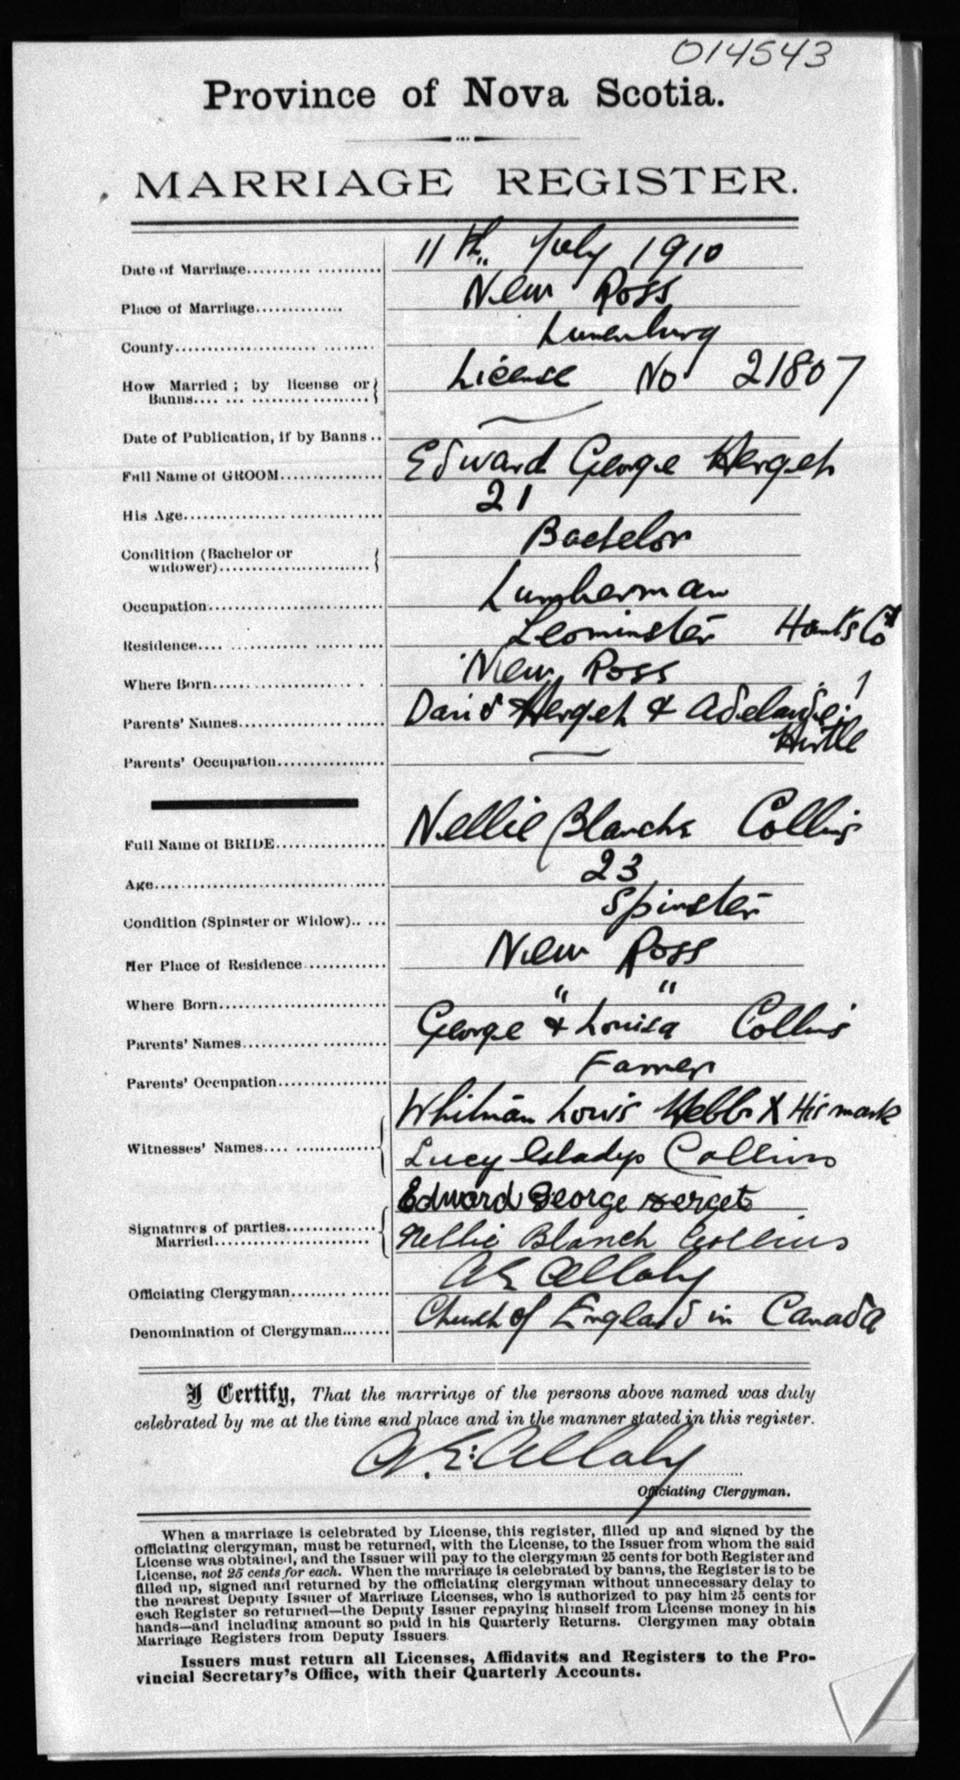 014543
Province of Nova Scotia.
MARRIAGE REGISTER.
Date of Marriage.......... 11th July 1910
Place of Marriage.......... New Ross
County.......... Lunenburg
How Married; by license or Banns.......... License No 21807
Date of Publication, if by Banns.. —
Full Name of GROOM.......... Edward George Herget
His Age.......... 21
Condition (Bachelor or widower).......... Bachelor
Occupation.......... Lumberman
Residence.......... Leominster Hants Co
Where Born.......... New Ross
Parents' Names.......... David Herget & Adelaide
Hirtle
Parents' Occupation.......... —
Full Name of BRIDE.......... Nellie Blanche Collins
Age.......... 23
Condition (Spinster or Widow)..... Spinster
Her Place of Residence.......... New Ross
Where Born.......... " "
Parents' Names.......... George & Louisa Collins
Parents' Occupation.......... Farmer
Witnesses' Names.......... Whitman Louis Webb X His mark
Lucy Gladys Collins
Signatures of parties Married.......... Edward George Herget
Nellie Blanch Collins
Officiating Clergyman..........
Denomination of Clergyman....... Church of England in Canada
I Certify, That the marriage of the persons above named was duly
celebrated by me at the time and place and in the manner stated in this register.
Officiating Clergyman.
When a marriage is celebrated by License, this register, filled up and signed by the
officiating clergyman, must be returned, with the License, to the Issuer from whom the said
License was obtained, and the Issuer will pay to the clergyman 25 cents for both Register and
License, not 25 cents for each. When the marriage is celebrated by banns, the Register is to be
filled up, signed and returned by the officiating clergyman without unnecessary delay to
the nearest Deputy Issuer of Marriage Licenses, who is authorized to pay him 25 cents for
each Register so returned—the Deputy Issuer repaying himself from License money in his
hands—and including amount so paid in his Quarterly Returns. Clergymen may obtain
Marriage Registers from Deputy Issuers.
Issuers must return all Licenses, Affidavits and Registers to the Pro-
vincial Secretary's Office, with their Quarterly Accounts.